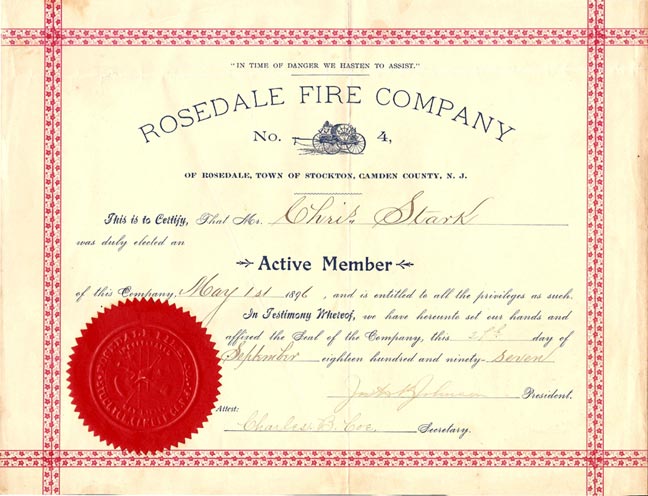 "IN TIME OF DANGER WE HASTEN TO ASSIST."
ROSEDALE FIRE COMPANY
No. 4,
OF ROSEDALE, TOWN OF STOCKTON, CAMDEN COUNTY, N. J.
This is to Certify, That Mr. Chris Stark
was duly elected an
Active Member
of this Company, May 1st 1896, and is entitled to all the privileges as such.
In Testimony Whereof, we have hereunto set our hands and
affixed the Seal of the Company, this day of
September eighteen hundred and ninety-seven
Johnson President.
Attest:
Charles B. Coe Secretary.